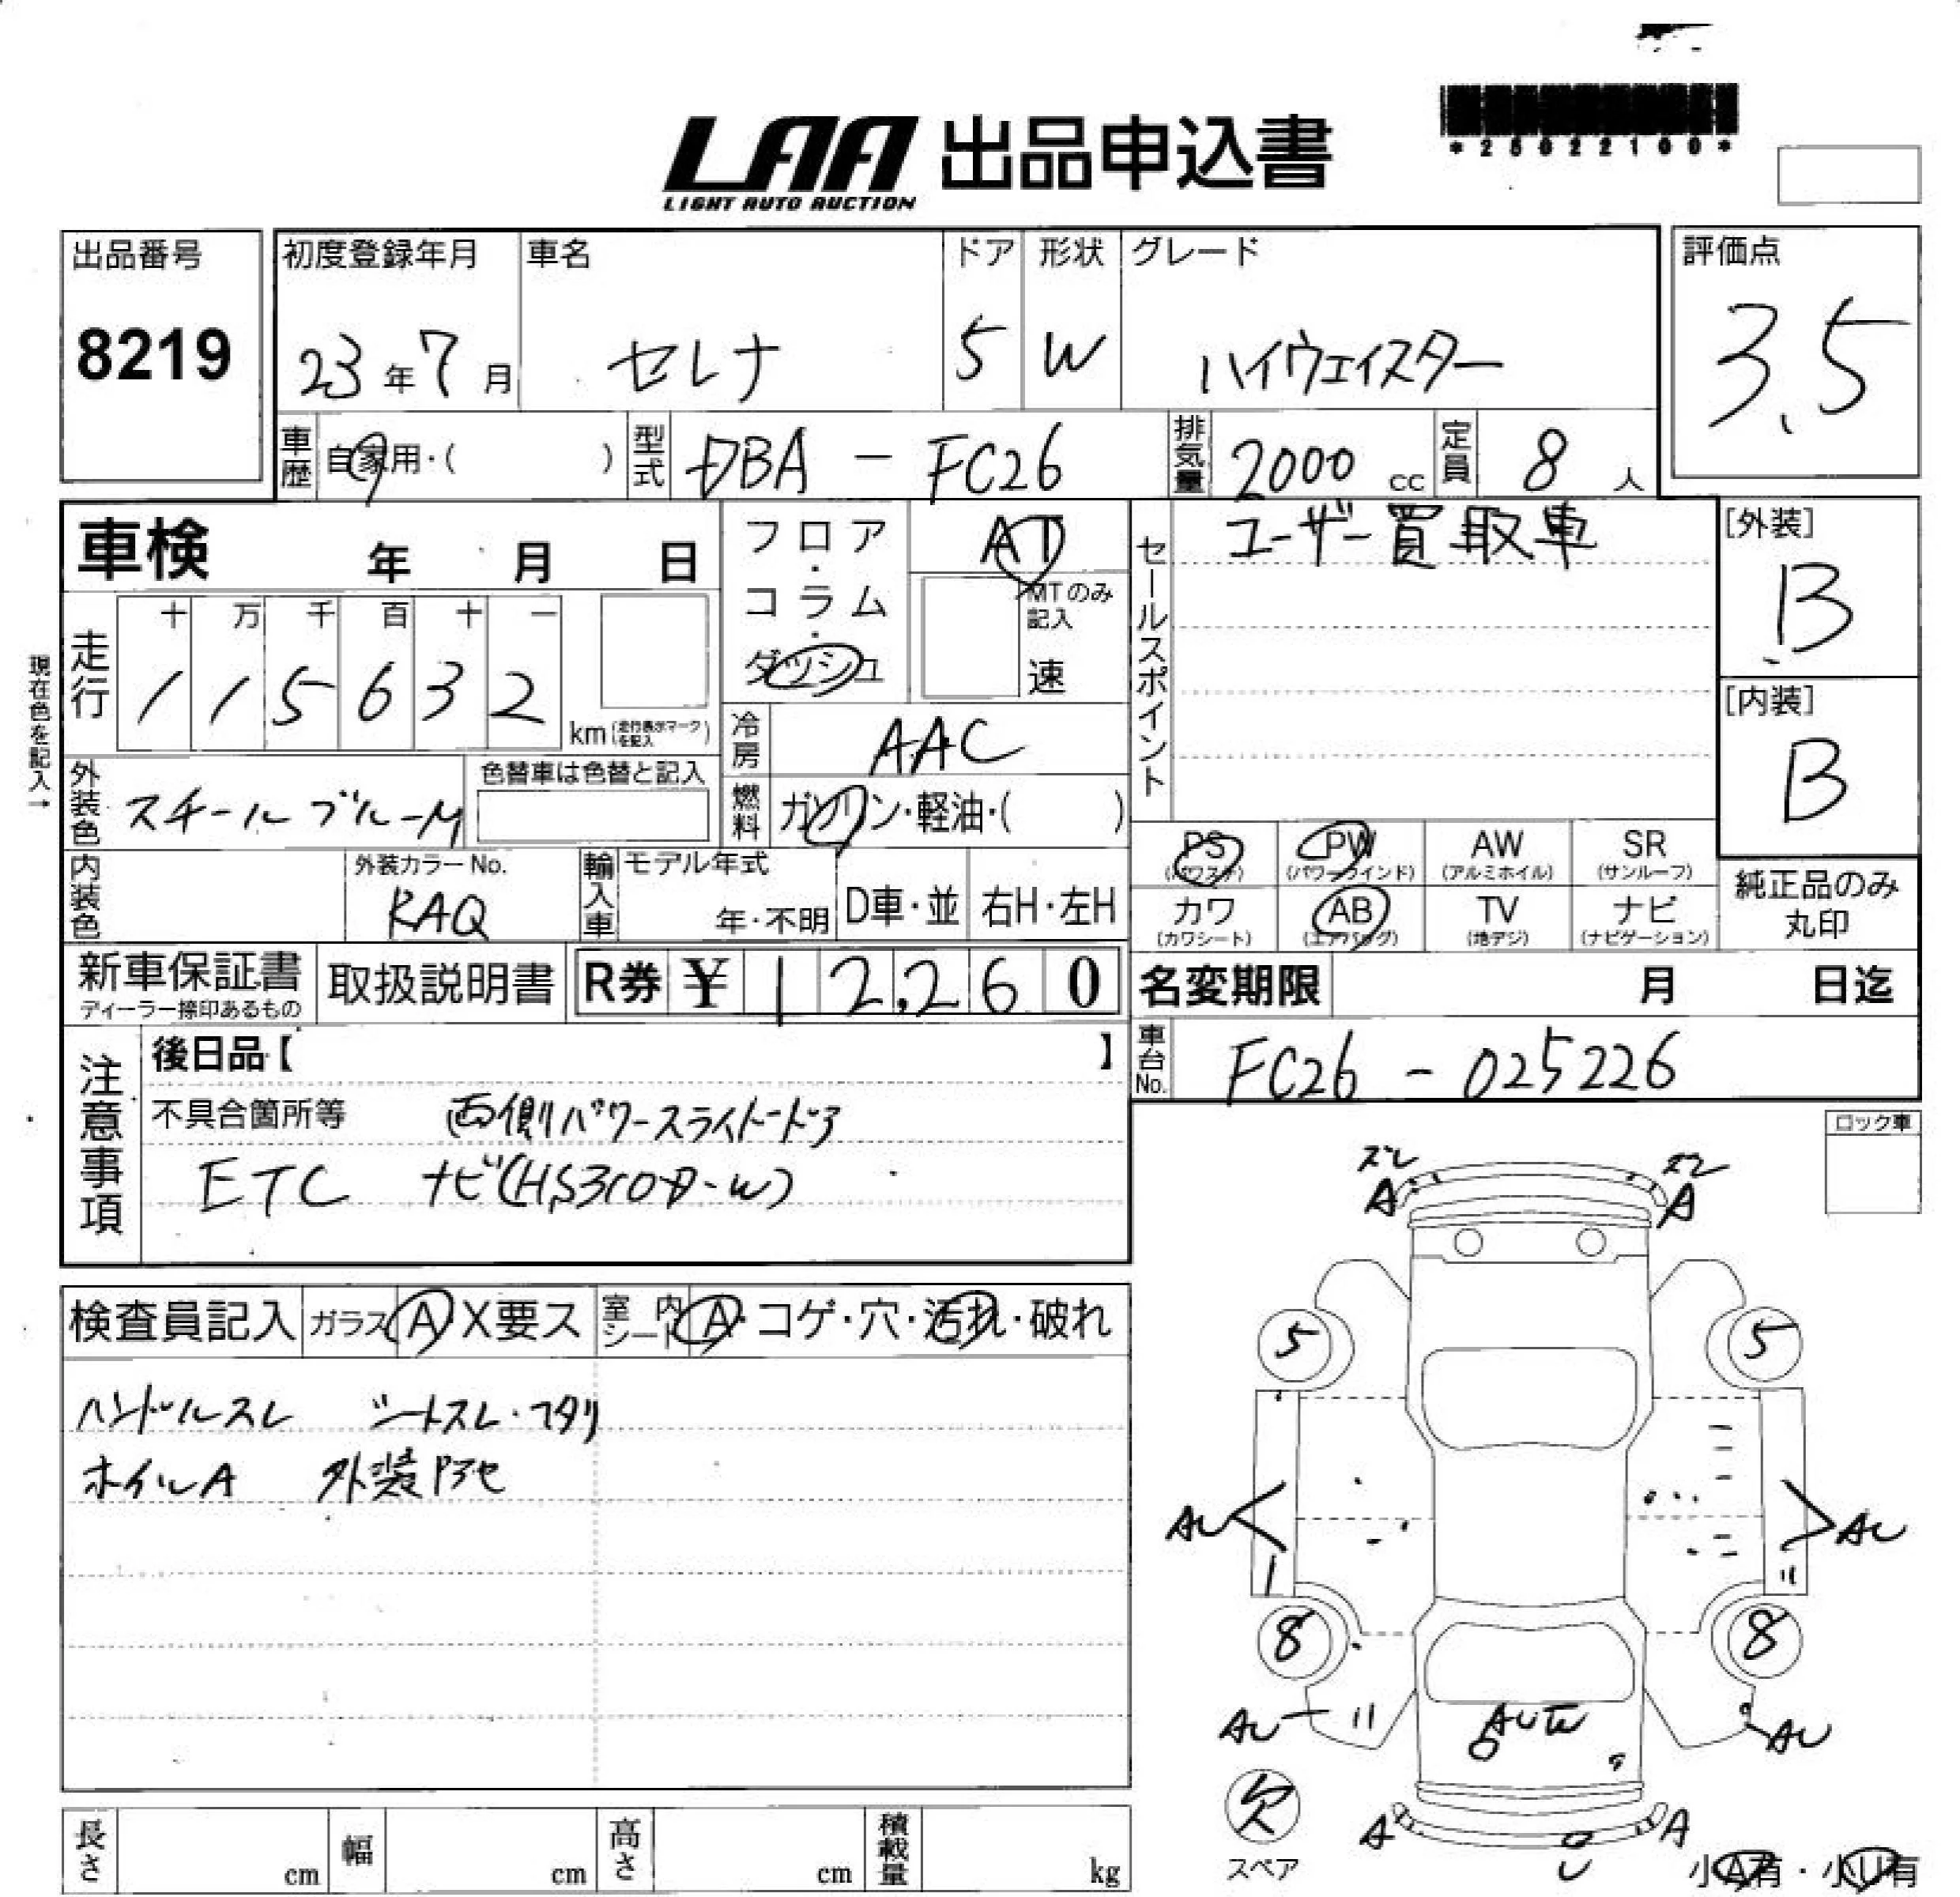 *25022100*
LAA 出品申込書
LIGHT AUTO AUCTION
出品番号 初度登録年月 車名 ドア 形状 グレード 評価点
8219 23年7月 セレナ 5 W ハイウェイスター 3.5
車歴 自家用・( ) 型式 DBA - FC26 排気量 2000 cc 定員 8 人
車検 年 月 日 フロア・コラム・ダッシュ AT セールスポイント ユーザー買取車 [外装]
B
MTのみ記入
速
現在色を記入→
走行 十 万 千 百 十 一
1 1 5 6 3 2 km (走行表示マークを記入)
[内装]
B
冷房 AAC
外装色 スチールブルーM 色替車は色替と記入 燃料 ガソリン・軽油・( )
PS (パワステ) PW (パワーウインド) AW (アルミホイル) SR (サンルーフ)
内装色 外装カラーNo. RAQ 輸入車 モデル年式 年・不明 D車・並 右H・左H
カワ (カワシート) AB (エアバッグ) TV (地デジ) ナビ (ナビゲーション)
純正品のみ
丸印
新車保証書 ディーラー捺印あるもの 取扱説明書 R券 ¥ 12,260 名変期限 月 日迄
注意事項 後日品【 】 車台No. FC26 - 025226
不具合箇所等 両側パワースライドドア
ETC ナビ(HS310D-W)
ロック車
検査員記入 ガラス A X要ス 室内シート A・コゲ・穴・汚れ・破れ
ハンドルスレ シートスレ・ヘタリ
ホイルA 外装色アセ
ズレ ズレ
A A
5 5
AU AU
8 8
AU AU
A A
U
欠
スペア
小A有・小U有
長さ cm 幅 cm 高さ cm 積載量 kg